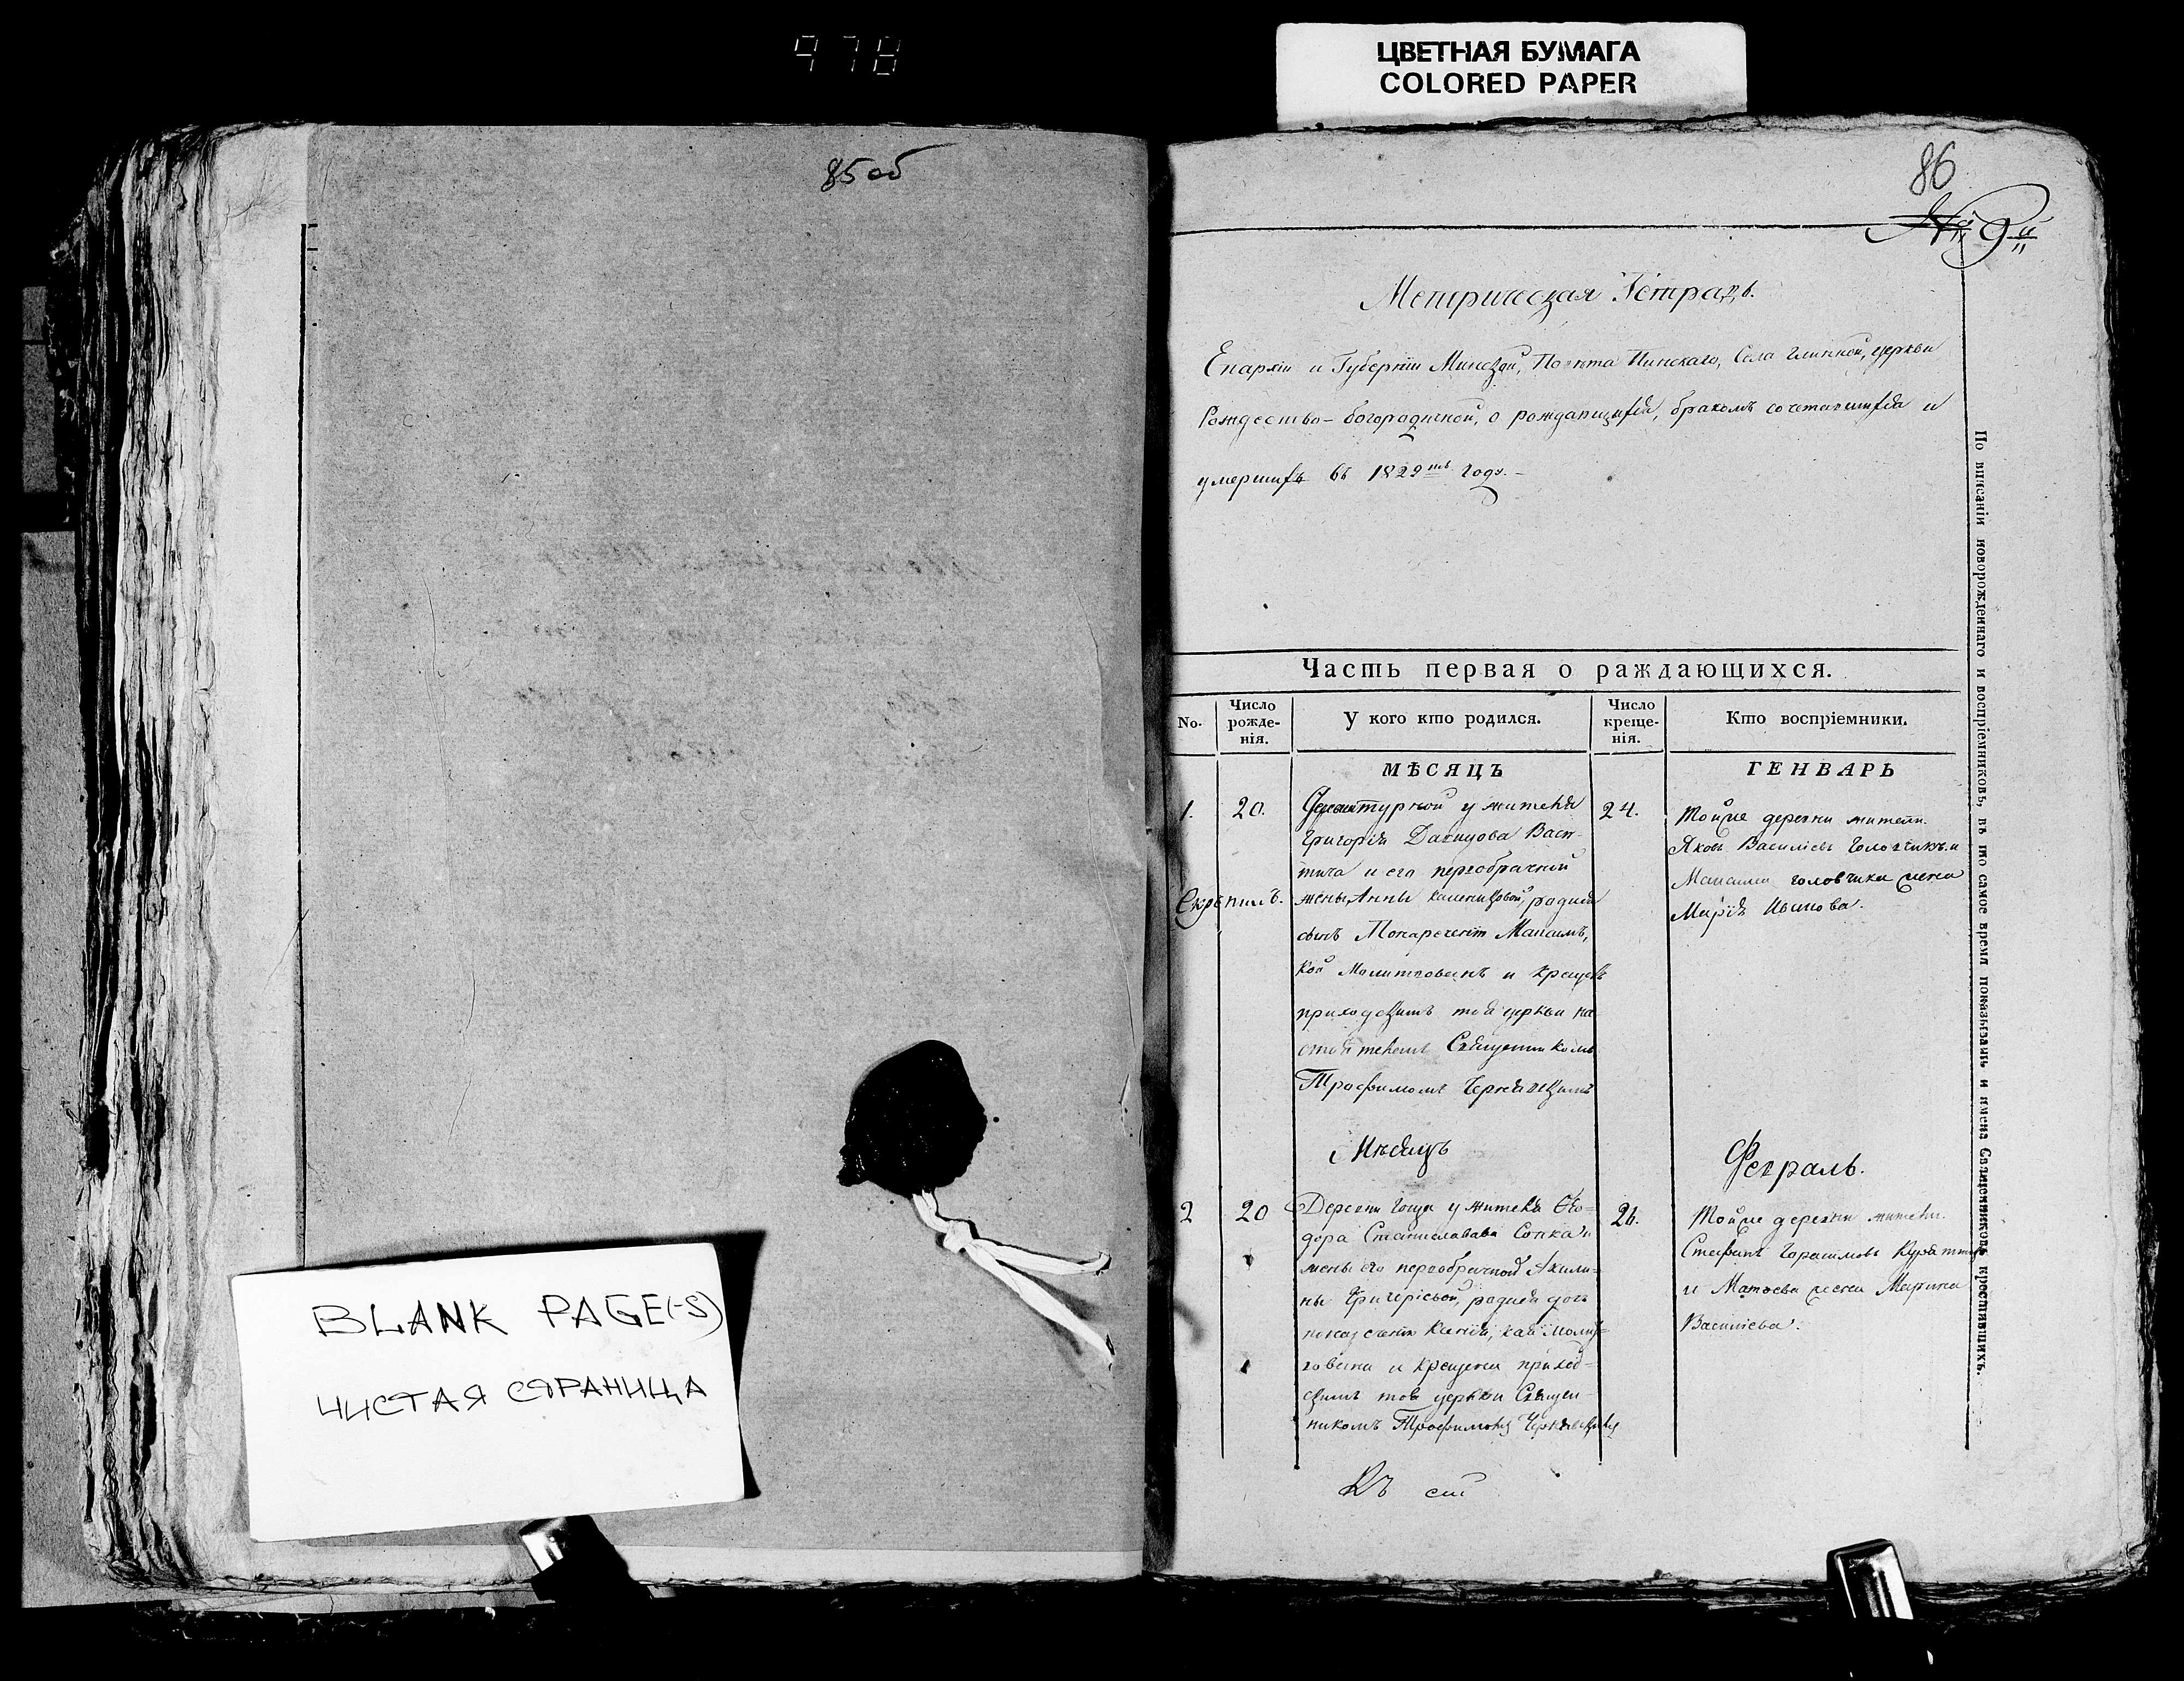 978
ЦВЕТНАЯ БУМАГА
COLORED PAPER
85 об
BLANK PAGE(-S)
ЧИСТАЯ СТРАНИЦА
86
№ 9й
Метрическая Тетрадь.
Епархіи и Губерніи Минской, Повѣта Пинскаго, Села Глинной, церкви
Рождество-Богородичной, о рождающихся, бракомъ сочетавшихся и
умершихъ въ 1829мъ году.-
Часть первая о раждающихся.
No.
Число рожденія.
У кого кто родился.
Число крещенія.
Кто воспріемники.
МѢСЯЦЪ
ГЕНВАРЬ
1.
20.
у жителя
Григорія Давидова
и его первобрачной
жены Анны родился
сынъ Понареченъ
кой Молитвованъ и крещенъ
приходскимъ той церкви на
стоятелемъ Священникомъ
Трофимомъ
24.
Тойже деревни жители
Яковъ Василіевъ Головчикъ и
головчика жена
Марія Иванова.
Скрепилъ.
Мѣсяцъ
Февраль.
2
20
Деревни у жителя Ѳео=
дора Станиславова и
жены его первобрачной Акили=
ны Григоріевой, родися дочь
кая Молит=
вована и крещена приход=
скимъ той церкви Священ-
никомъ Трофимомъ
26.
Тойже деревни жители.
Стефанъ Герасимовъ
и Матвѣева жена Марина
Василіева.
Къ сей
По вписаніи новорожденнаго и воспріемниковъ, въ то самое время показывать и имена Священниковъ крестившихъ.